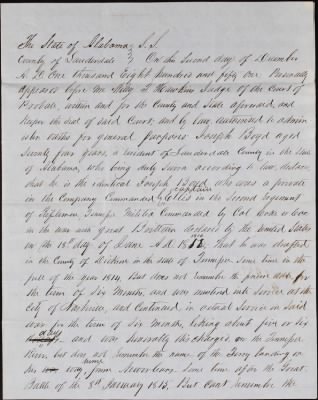 The State of Alabama S.S.
County of Lauderdale } On this Second day of December
A.D. One thousand Eight hundred and fifty One Personally
appeared before me Wiley T. Hawkins Judge of the Court of
Probate, within and for the County and State aforesaid, and
keeper the seal of said Court, and by law authorised to admin
ister oaths for general purposes Joseph Boyd aged
Seventy four years, a resident of Lauderdale County in the State
of Alabama, who being duly Sworn according to law, declares
that he is the identical Joseph Boyd who was a private
in the Company Commanded by Captain in the Second regiment
of Riflemen, Tennessee Militia Commanded by Col in
the war with Great Brittain declared by the United States
on the 18th day of June A.D. 1812. That he was drafted
in the County of Dickson in the State of Tennessee Some time in the
fall of the year 1814, But does not remember the precise date for
the term of Six Months, and was mustered into Service at the
City of Nashville, and Continued in actual Service in Said
war for the term of Six Months, lacking about five or Six
days and was honorably discharged on the Tennessee
River, but does not remember the name of the Ferry landing on
his way home from New orleans Some time after the Great
Battle of the 8th January 1815. But Cant remember the